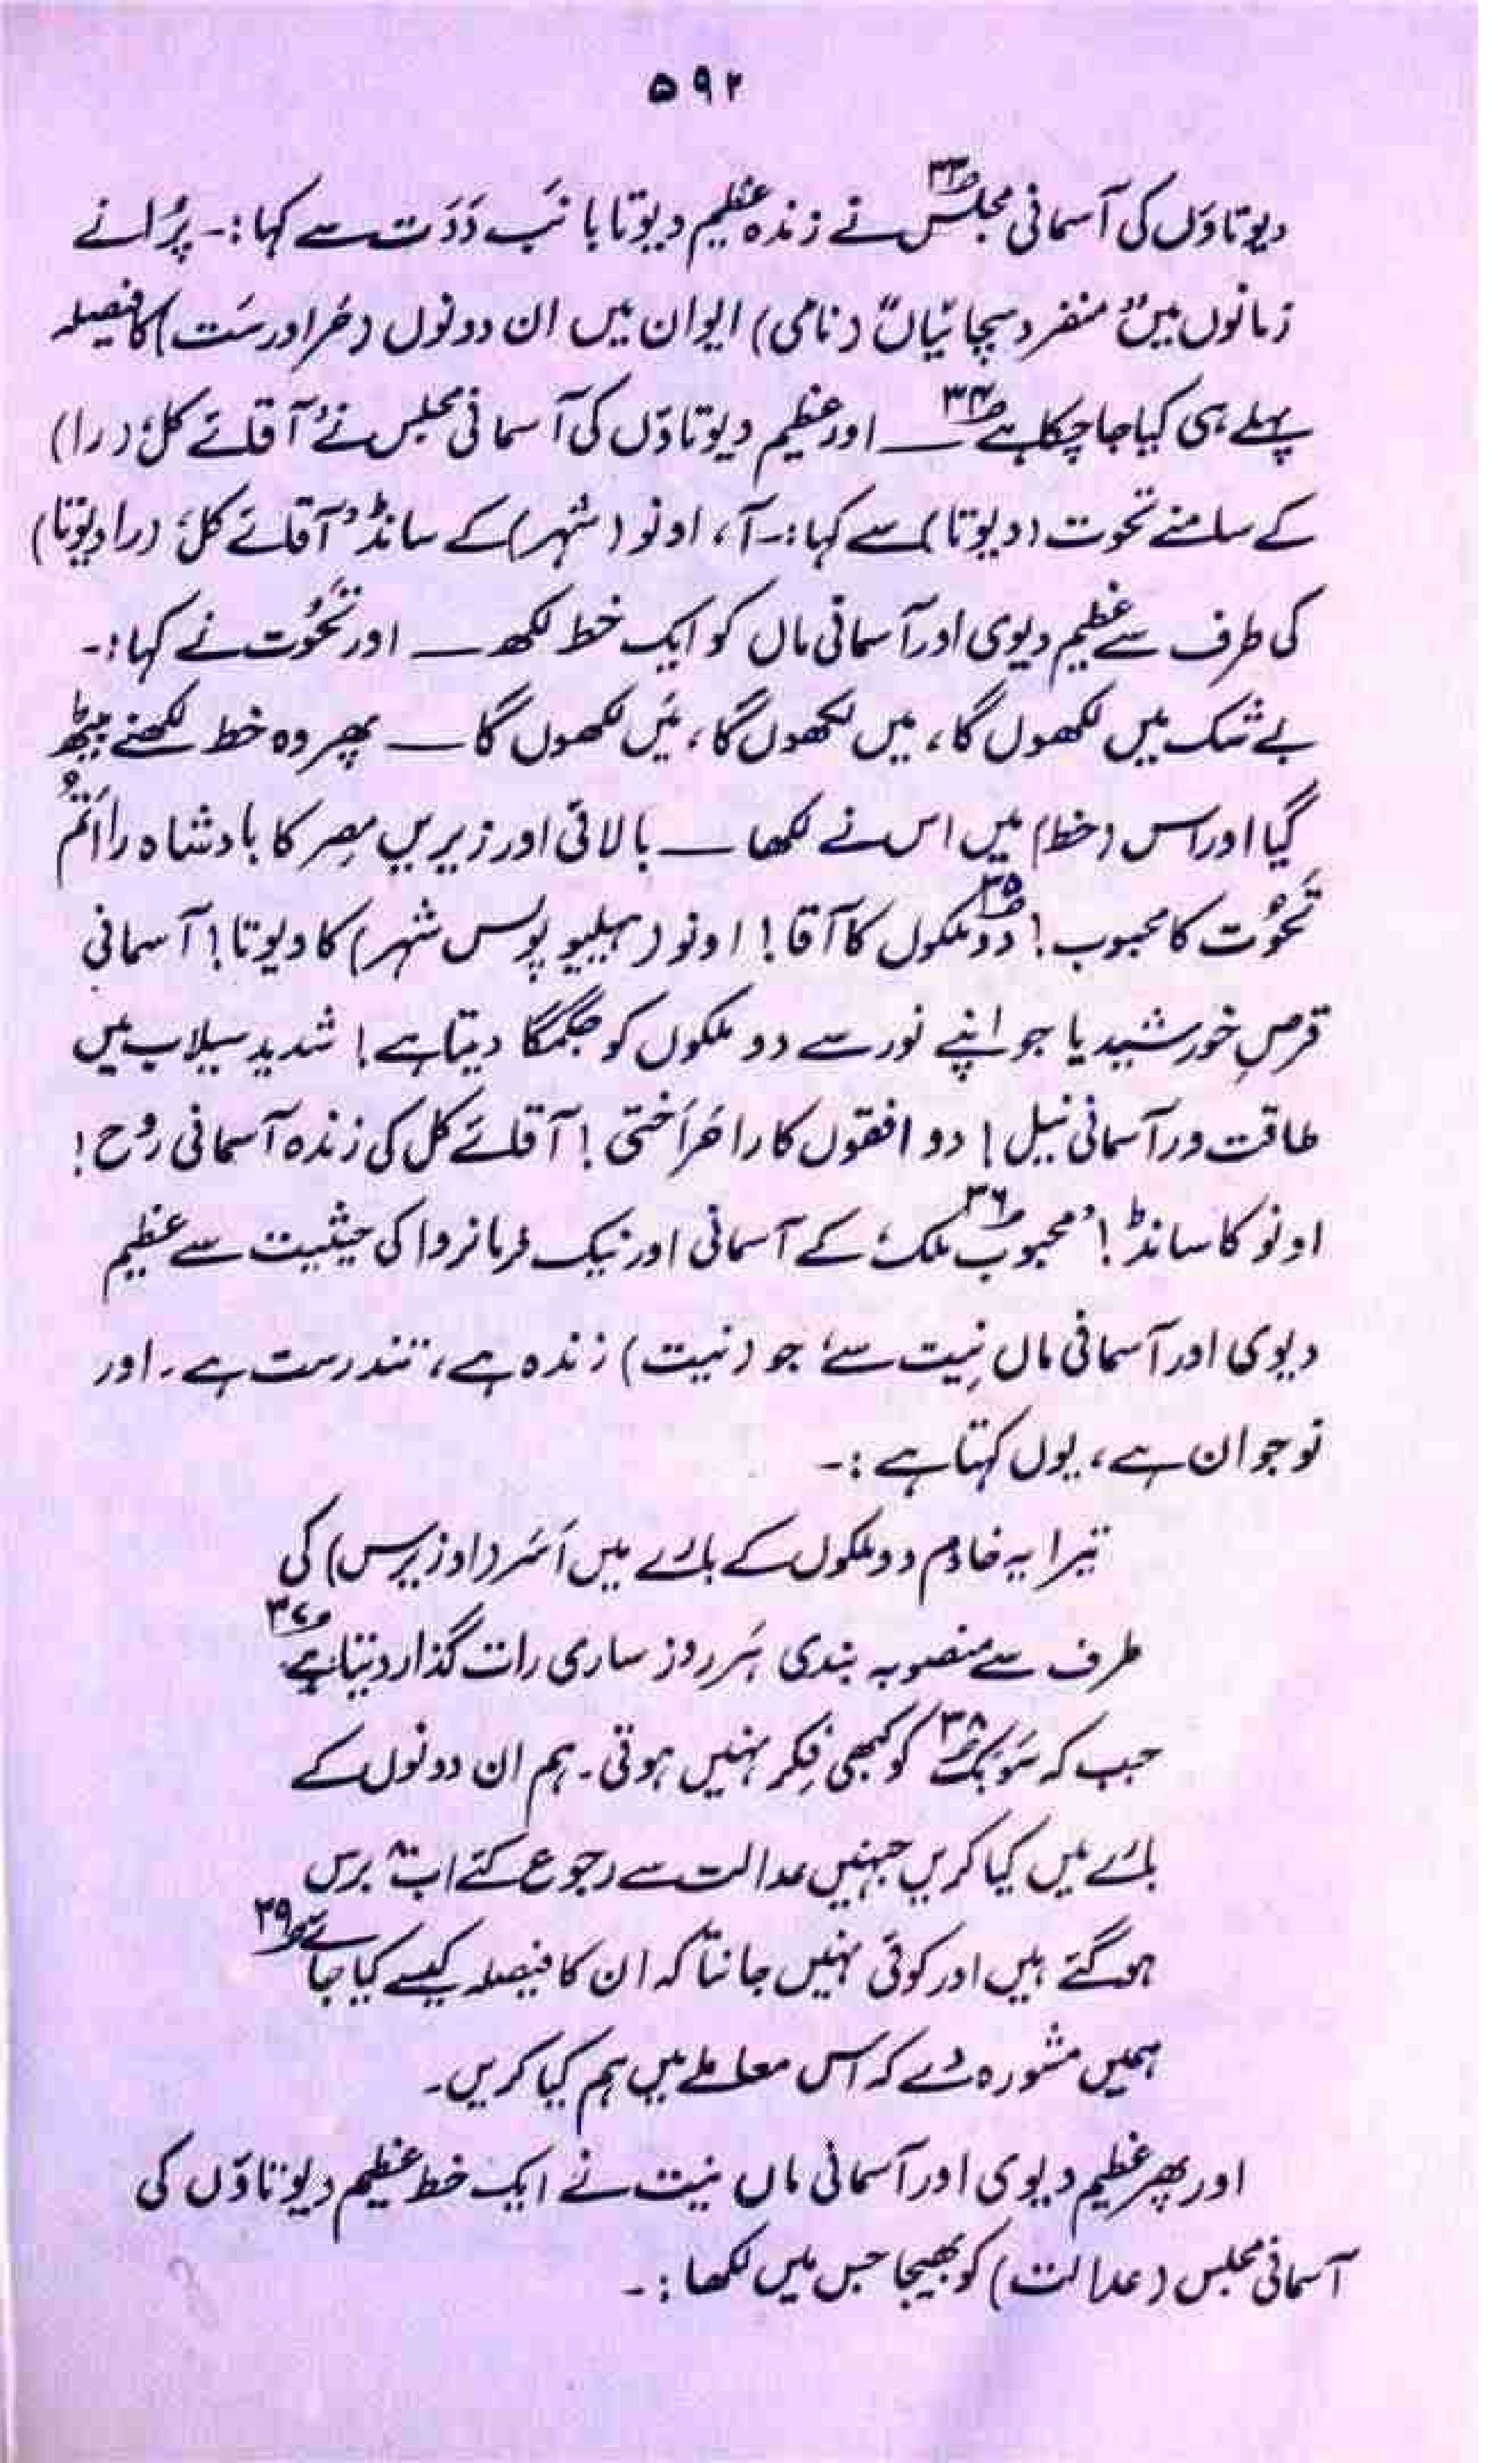 ۵۹۲
دیوتاؤں کی آسمانی مجلس۳۳ نے زندہ عظیم دیوتا با نَب دَدَت سے کہا:۔ پُرانے
زمانوں میں "منفرد سچائیاں" (نامی) ایوان میں ان دونوں (حَر اور سَت) کا فیصلہ
پہلے ہی کیا جا چکا ہے۳۴ — اور عظیم دیوتاؤں کی آسمانی مجلس نے "آقائے کل" (را)
کے سامنے تحوت (دیوتا) سے کہا:۔ آ، اونو (شہر) کے سانڈ "آقائے کل" (را دیوتا)
کی طرف سے عظیم دیوی اور آسمانی ماں کو ایک خط لکھ — اور تَحُوت نے کہا:۔
بے شک میں لکھوں گا، میں لکھوں گا، مَیں لکھوں گا — پھر وہ خط لکھنے بیٹھ
گیا اور اس (خط) میں اس نے لکھا — بالائی اور زیریں مِصر کا بادشاہ را اَتُم
تَحُوت کا محبوب! دو ملکوں۳۵ کا آقا! اونو (ہیلیو پولس شہر) کا دیوتا! آسمانی
قرصِ خورشید یا جو اپنے نور سے دو ملکوں کو جگمگا دیتا ہے! شدید سیلاب میں
طاقت ور آسمانی نیل! دو افقوں کا را حَر اَختی! آقائے کل کی زندہ آسمانی روح!
اونو کا سانڈ! "محبوب ملک"۳۶ کے آسمانی اور نیک فرمانروا کی حیثیت سے عظیم
دیوی اور آسمانی ماں نِیت سے، جو (نیت) زندہ ہے، تندرست ہے۔ اور
نوجوان ہے، یوں کہتا ہے:۔
تیرا یہ خادم دو ملکوں کے بارے میں اَسَر (اوزیرس) کی
طرف سے منصوبہ بندی ہَر روز ساری رات گذار دیتا ہے۳۷
جب کہ سَوبک۳۸ کو کبھی فِکر نہیں ہوتی۔ ہم ان دونوں کے
بارے میں کیا کریں جنہیں عدالت سے رجوع کئے اب ۸۰ برس
ہو گئے ہیں اور کوئی نہیں جانتا کہ ان کا فیصلہ کیسے کیا جائے۳۹
ہمیں مشورہ دے کہ اس معاملے میں ہم کیا کریں۔
اور پھر عظیم دیوی اور آسمانی ماں نیت نے ایک خط عظیم دیوتاؤں کی
آسمانی مجلس (عدالت) کو بھیجا جس میں لکھا:۔